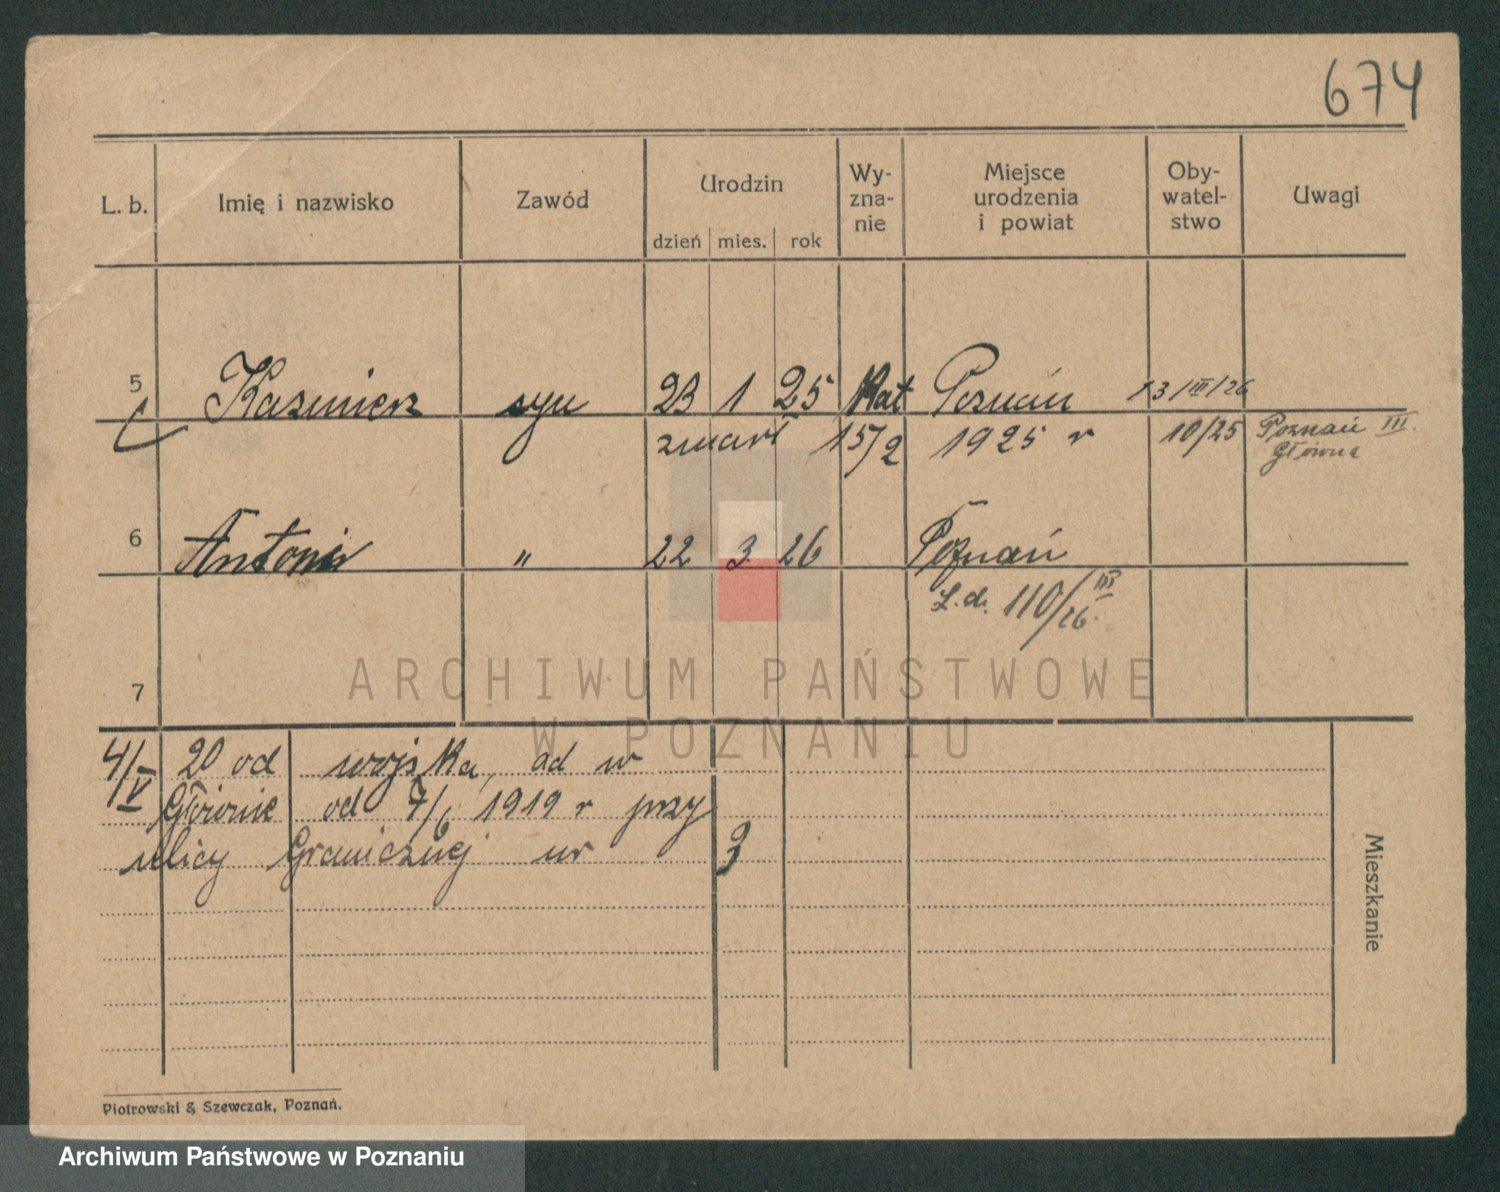 674
L. b. Imię i nazwisko Zawód Urodzin dzień mies. rok Wy-zna-nie Miejsce urodzenia i powiat Oby-watel-stwo Uwagi
5 Kazimierz syn 23 1 25 Kat Poznań 13/III/26
zmarł 15/2 1925 r 10/25 Poznań III.
Główna
6 Antoni " 22 3 26 Poznań
L.d. 110/III 26.
7
ARCHIWUM PAŃSTWOWE
W POZNANIU
4/V 20 od wojska, ad w
Głównie od 7/6 1919 r przy
ulicy Granicznej nr 3
Mieszkanie
Piotrowski & Szewczak, Poznań.
Archiwum Państwowe w Poznaniu